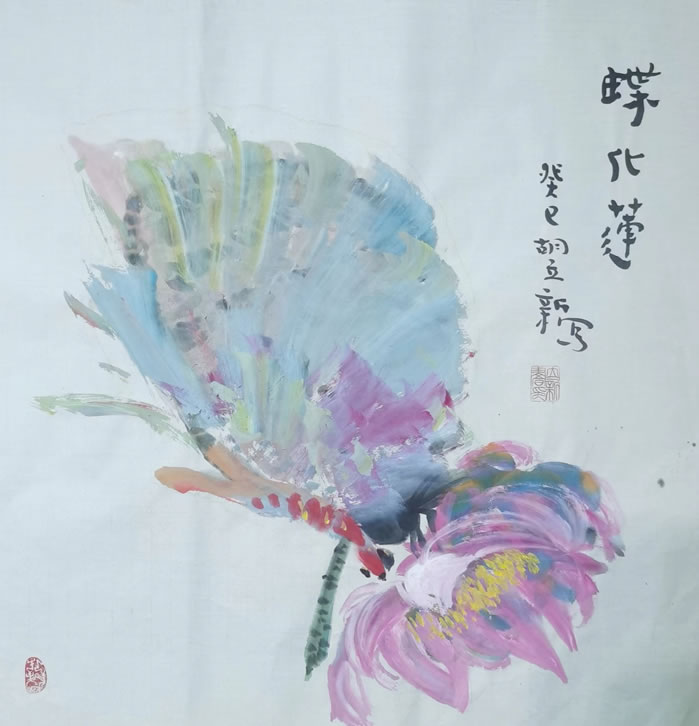 蝶化莲
癸巳胡立新写